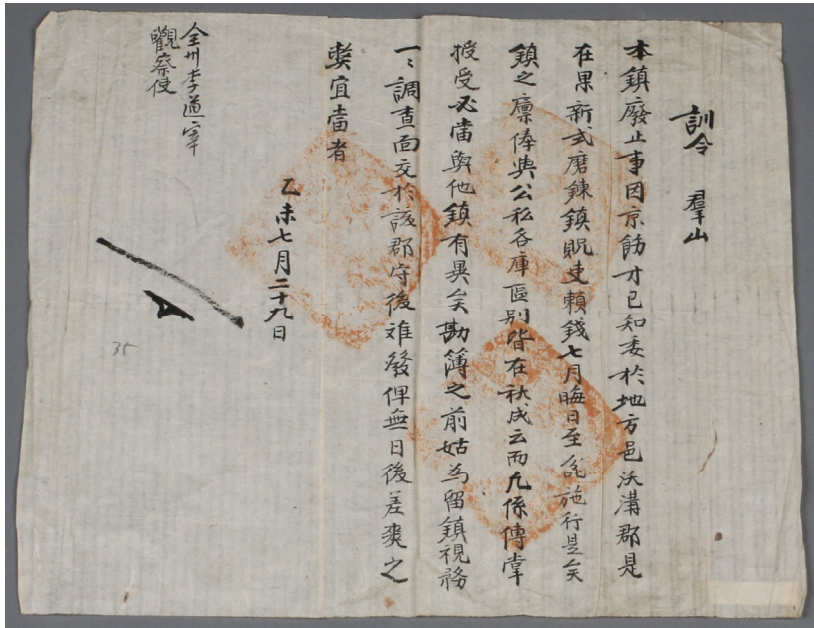 訓令 羣山
本鎮廢止事因京飭才已知委於地方邑沃溝郡是
在果新式磨鍊鎮賬吏賴錢七月晦日至 施行是矣
鎮之廩俸與公私各庫區別皆在秋成云而凡係傳掌
授受必當與他鎮有異矣勘簿之前姑爲留鎮視務
一〻調查面交於該郡守後離發俾無日後差爽之
獘宜當者
乙未七月二十九日
全州李道宰
觀察使
35